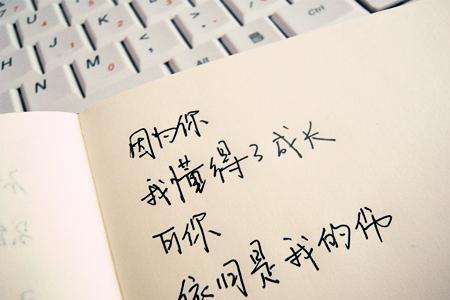 J
K
L
H
N
M 0
Alt
Ctrl
因为你
我懂得了成长
可你
依旧是我的伤